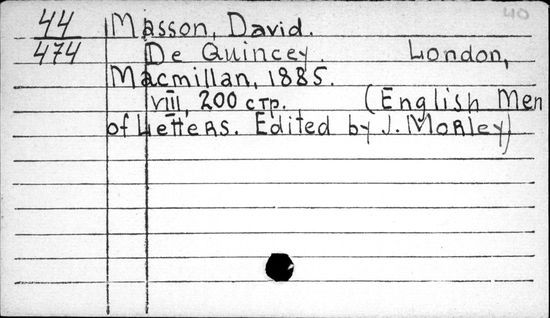 40
44 Masson, David.
474 De Quincey London,
Macmillan, 1885.
VIII, 200 стр. (English Men
of Letters. Edited by J. Morley)